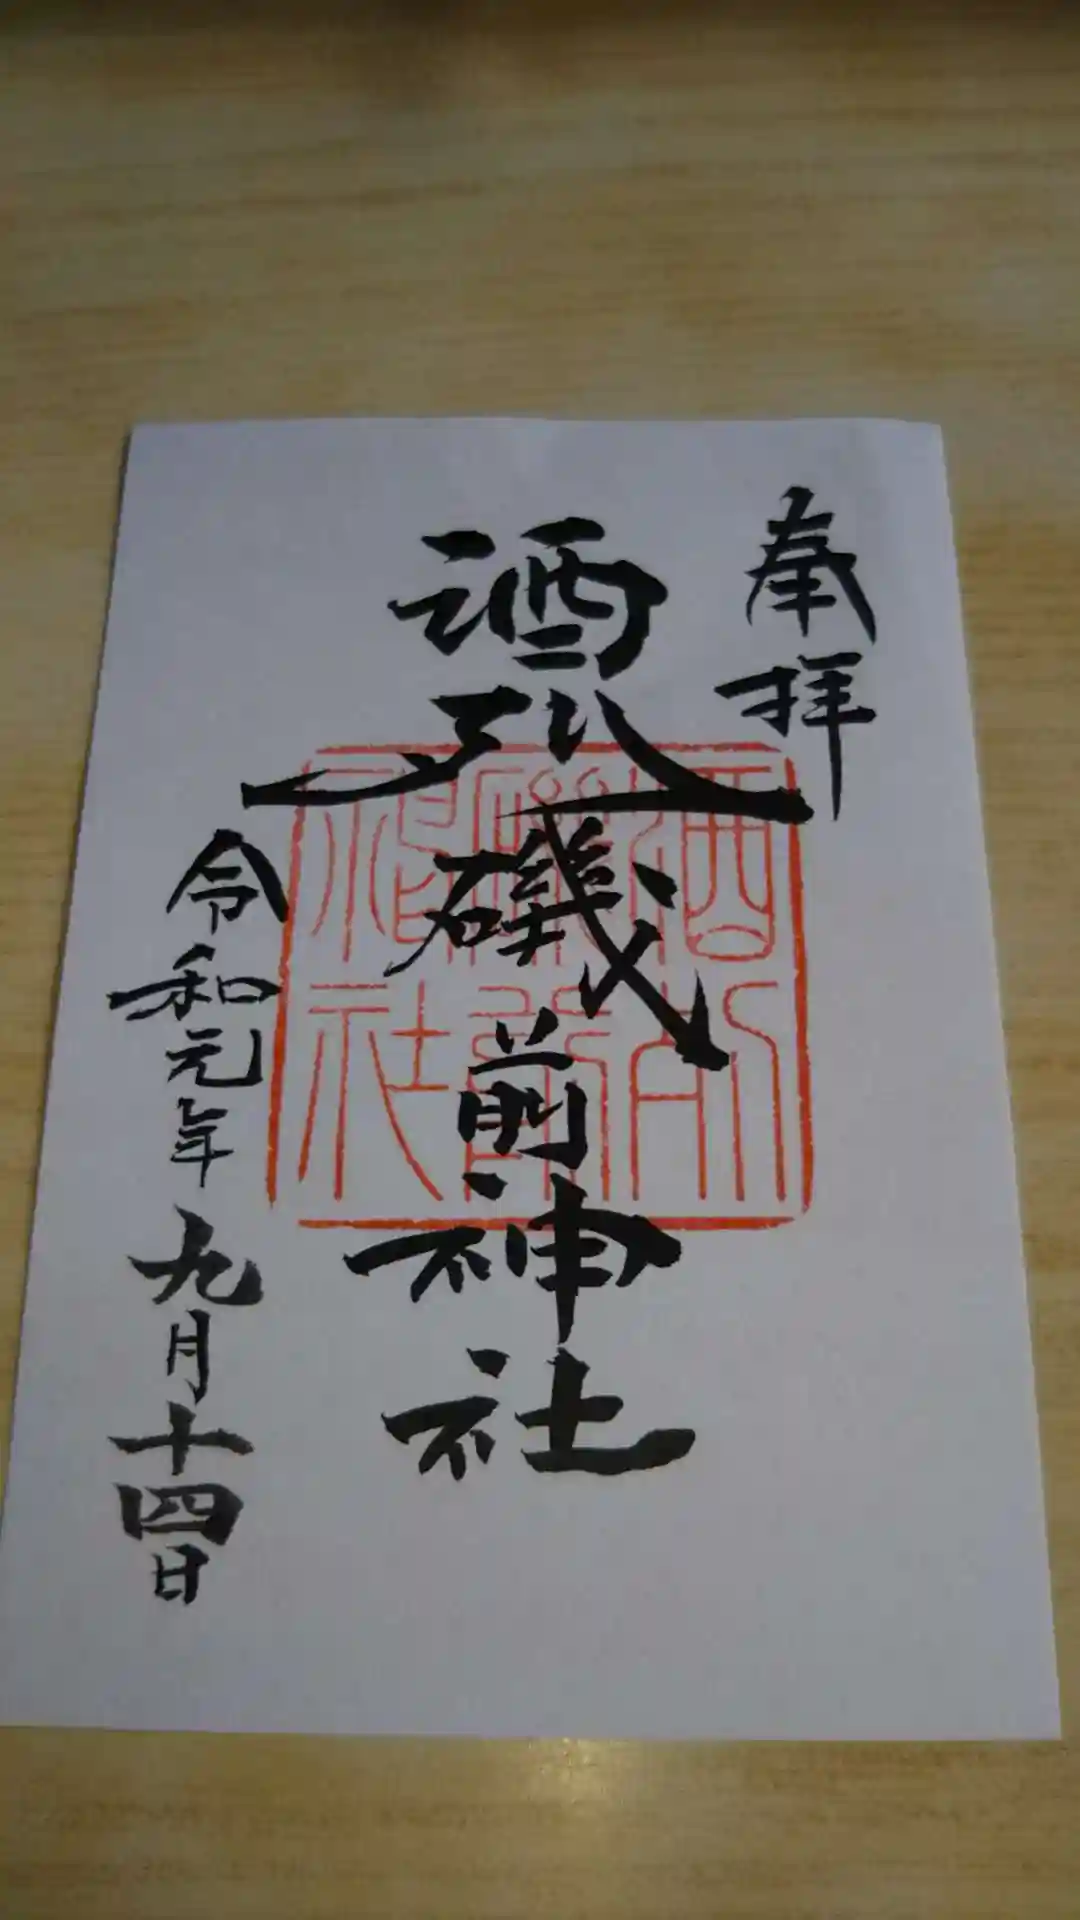 奉拝
酒列磯前神社
令和元年九月十四日
酒列
磯前
神社